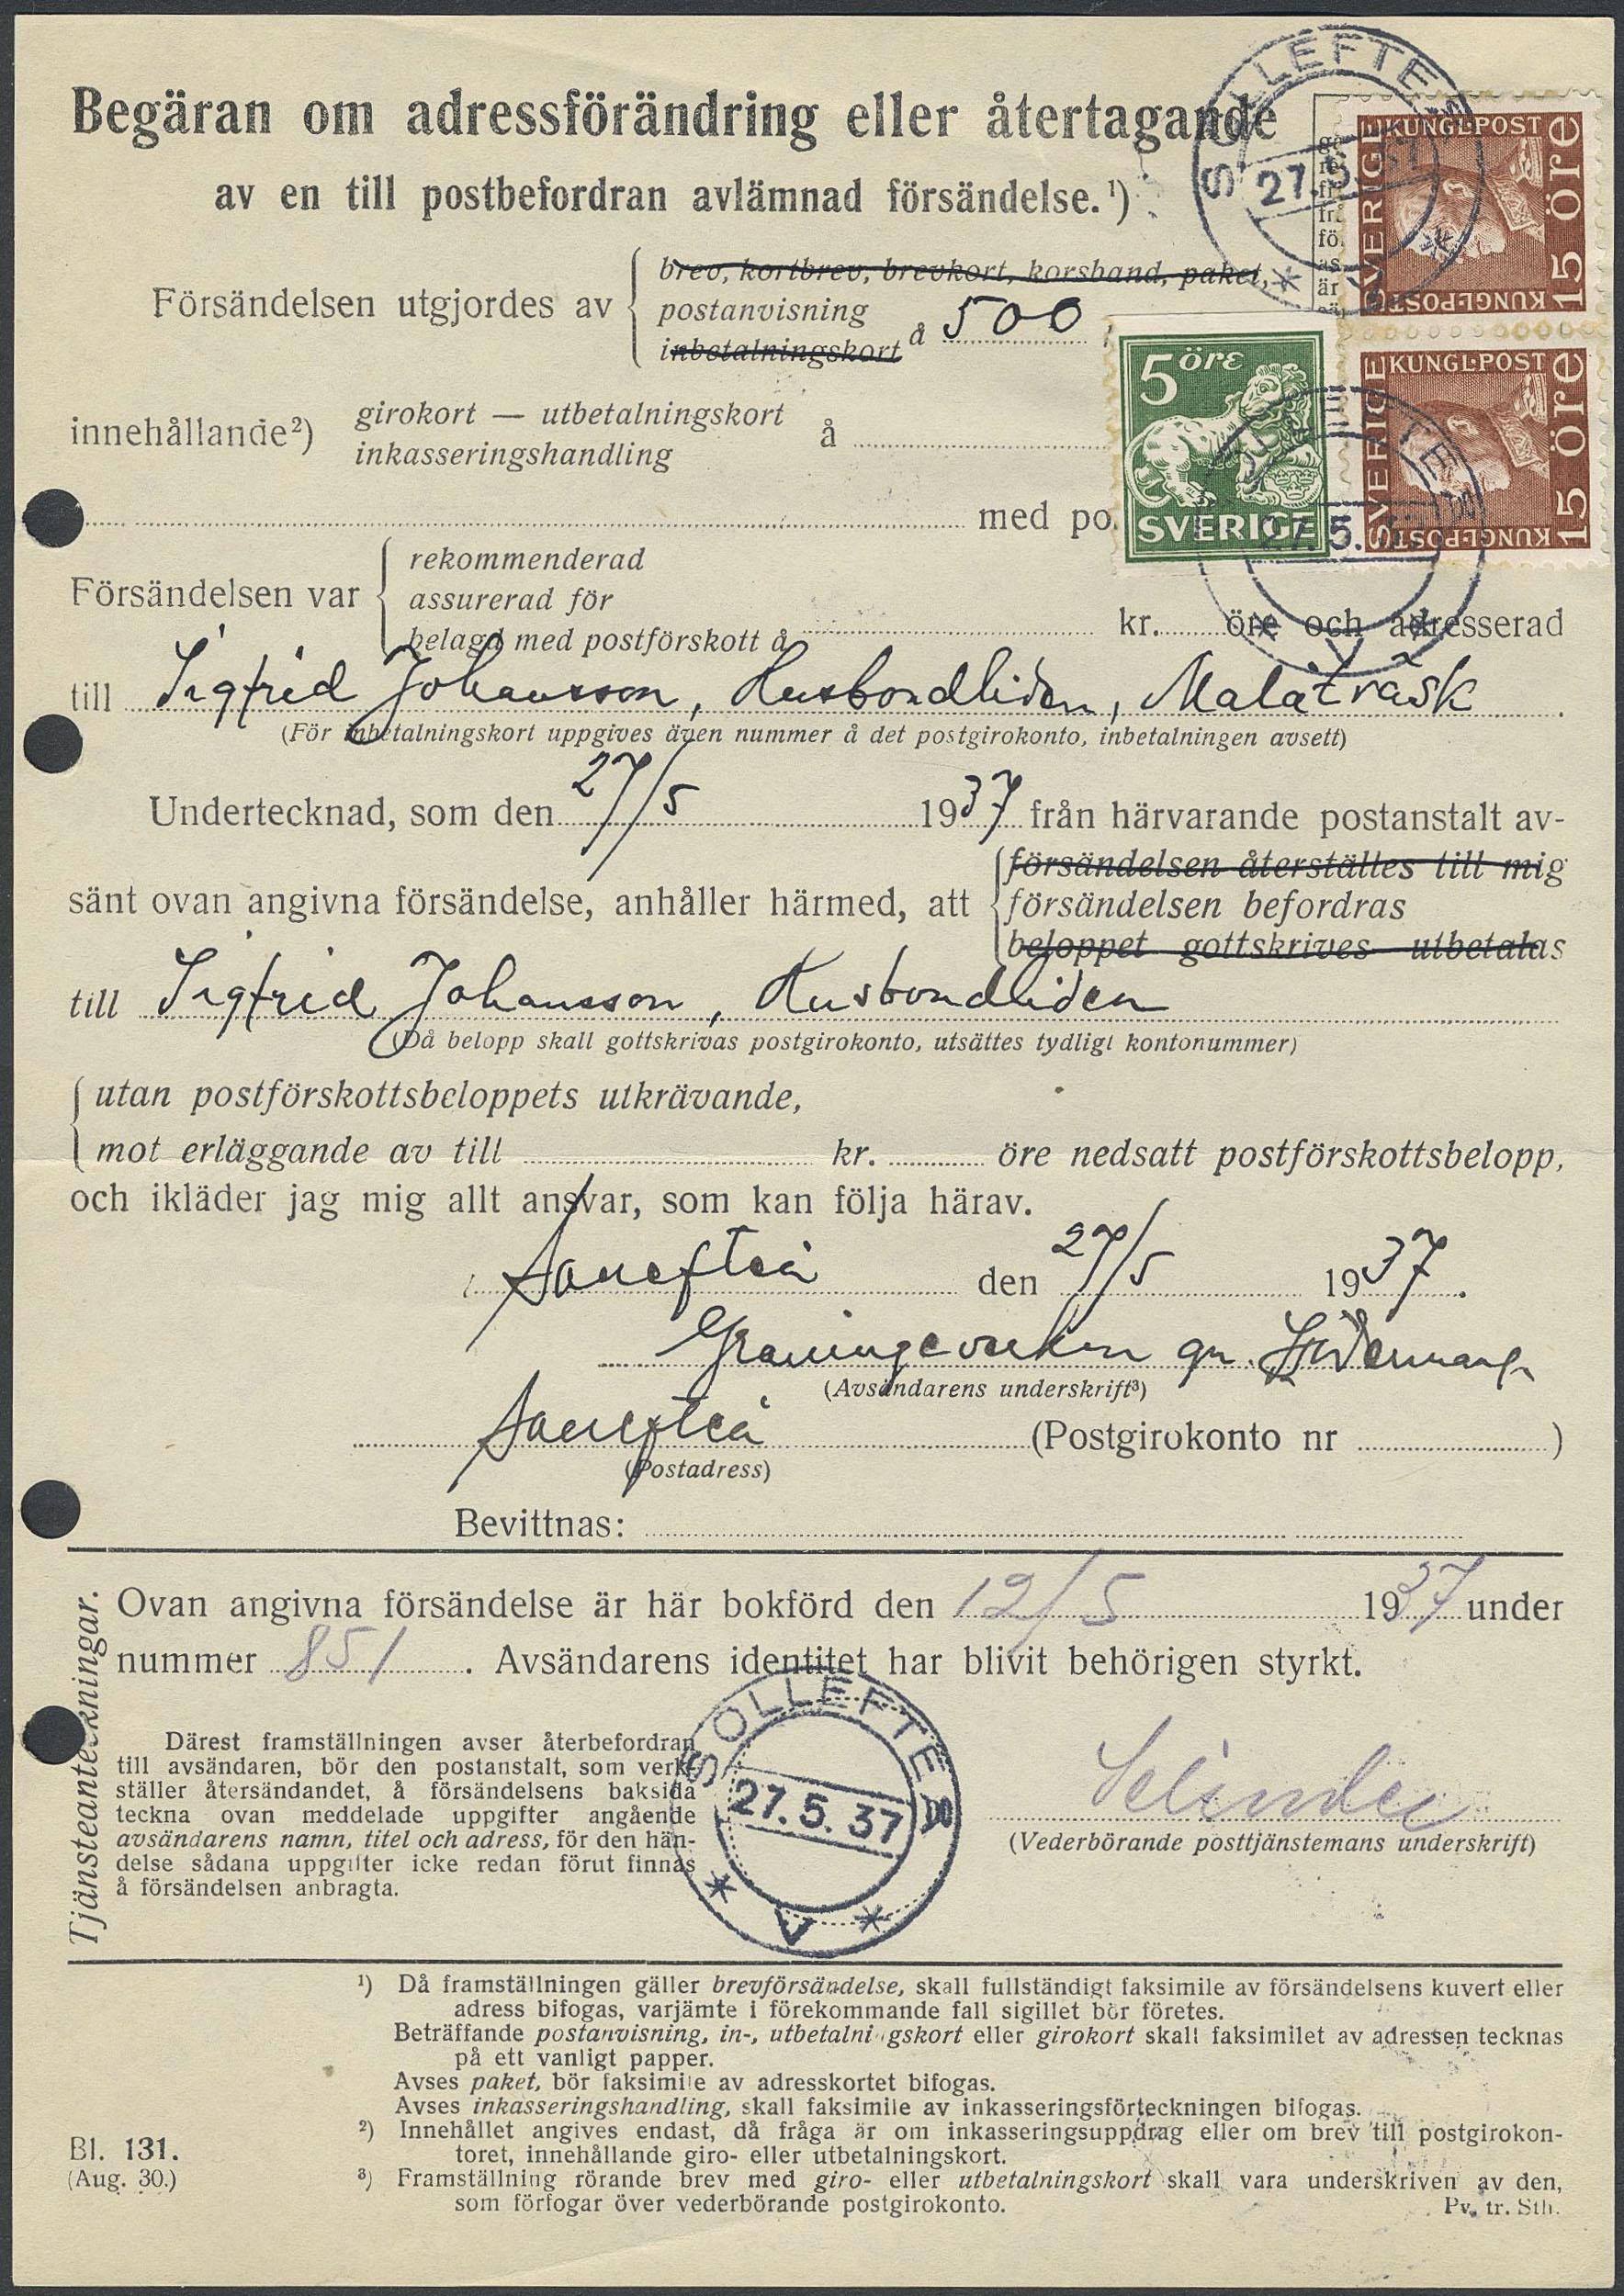 Begäran om adressförändring eller återtagande
av en till postbefordran avlämnad försändelse.¹)
SOLLEFTEÅ
27.5.37
SVERIGE KUNGL·POST 15 ÖRE KUNGL·POST
Försändelsen utgjordes av
brev, kortbrev, brevkort, korsband, paket,
postanvisning
inbetalningskort
å 500
5 öre
SVERIGE
SVERIGE KUNGL·POST 15 ÖRE KUNGL·POST
27.5.
innehållande²)
girokort — utbetalningskort
inkasseringshandling
å
med po
Försändelsen var
rekommenderad
assurerad för
belagd med postförskott å
kr. öre och adresserad
till Sigfrid Johansson, Husbondliden, Malåträsk
(För inbetalningskort uppgives även nummer å det postgirokonto, inbetalningen avsett)
Undertecknad, som den 27/5 1937 från härvarande postanstalt av-
sänt ovan angivna försändelse, anhåller härmed, att
försändelsen återställes till mig
försändelsen befordras
beloppet gottskrives utbetalas
till Sigfrid Johansson, Husbondliden
(Då belopp skall gottskrivas postgirokonto, utsättes tydligt kontonummer)
utan postförskottsbeloppets utkrävande,
mot erläggande av till kr. öre nedsatt postförskottsbelopp,
och ikläder jag mig allt ansvar, som kan följa härav.
Sollefteå den 27/5 1937.
Graningeverken
(Avsändarens underskrift³)
Sollefteå (Postgirokonto nr )
(Postadress)
Bevittnas:
Tjänsteanteckningar.
Ovan angivna försändelse är här bokförd den 12/5 1937 under
nummer 851. Avsändarens identitet har blivit behörigen styrkt.
Därest framställningen avser återbefordran
till avsändaren, bör den postanstalt, som verk-
ställer återsändandet, å försändelsens baksida
teckna ovan meddelade uppgifter angående
avsändarens namn, titel och adress, för den hän-
delse sådana uppgifter icke redan förut finnas
å försändelsen anbragta.
SOLLEFTEÅ
27.5.37
(Vederbörande posttjänstemans underskrift)
¹) Då framställningen gäller brevförsändelse, skall fullständigt faksimile av försändelsens kuvert eller
adress bifogas, varjämte i förekommande fall sigillet bör företes.
Beträffande postanvisning, in-, utbetalningskort eller girokort skall faksimilet av adressen tecknas
på ett vanligt papper.
Avses paket, bör faksimile av adresskortet bifogas.
Avses inkasseringshandling, skall faksimile av inkasseringsförteckningen bifogas.
²) Innehållet angives endast, då fråga är om inkasseringsuppdrag eller om brev till postgirokon-
toret, innehållande giro- eller utbetalningskort.
³) Framställning rörande brev med giro- eller utbetalningskort skall vara underskriven av den,
som förfogar över vederbörande postgirokonto.
Bl. 131.
(Aug. 30.)
Pv. tr. Sth.